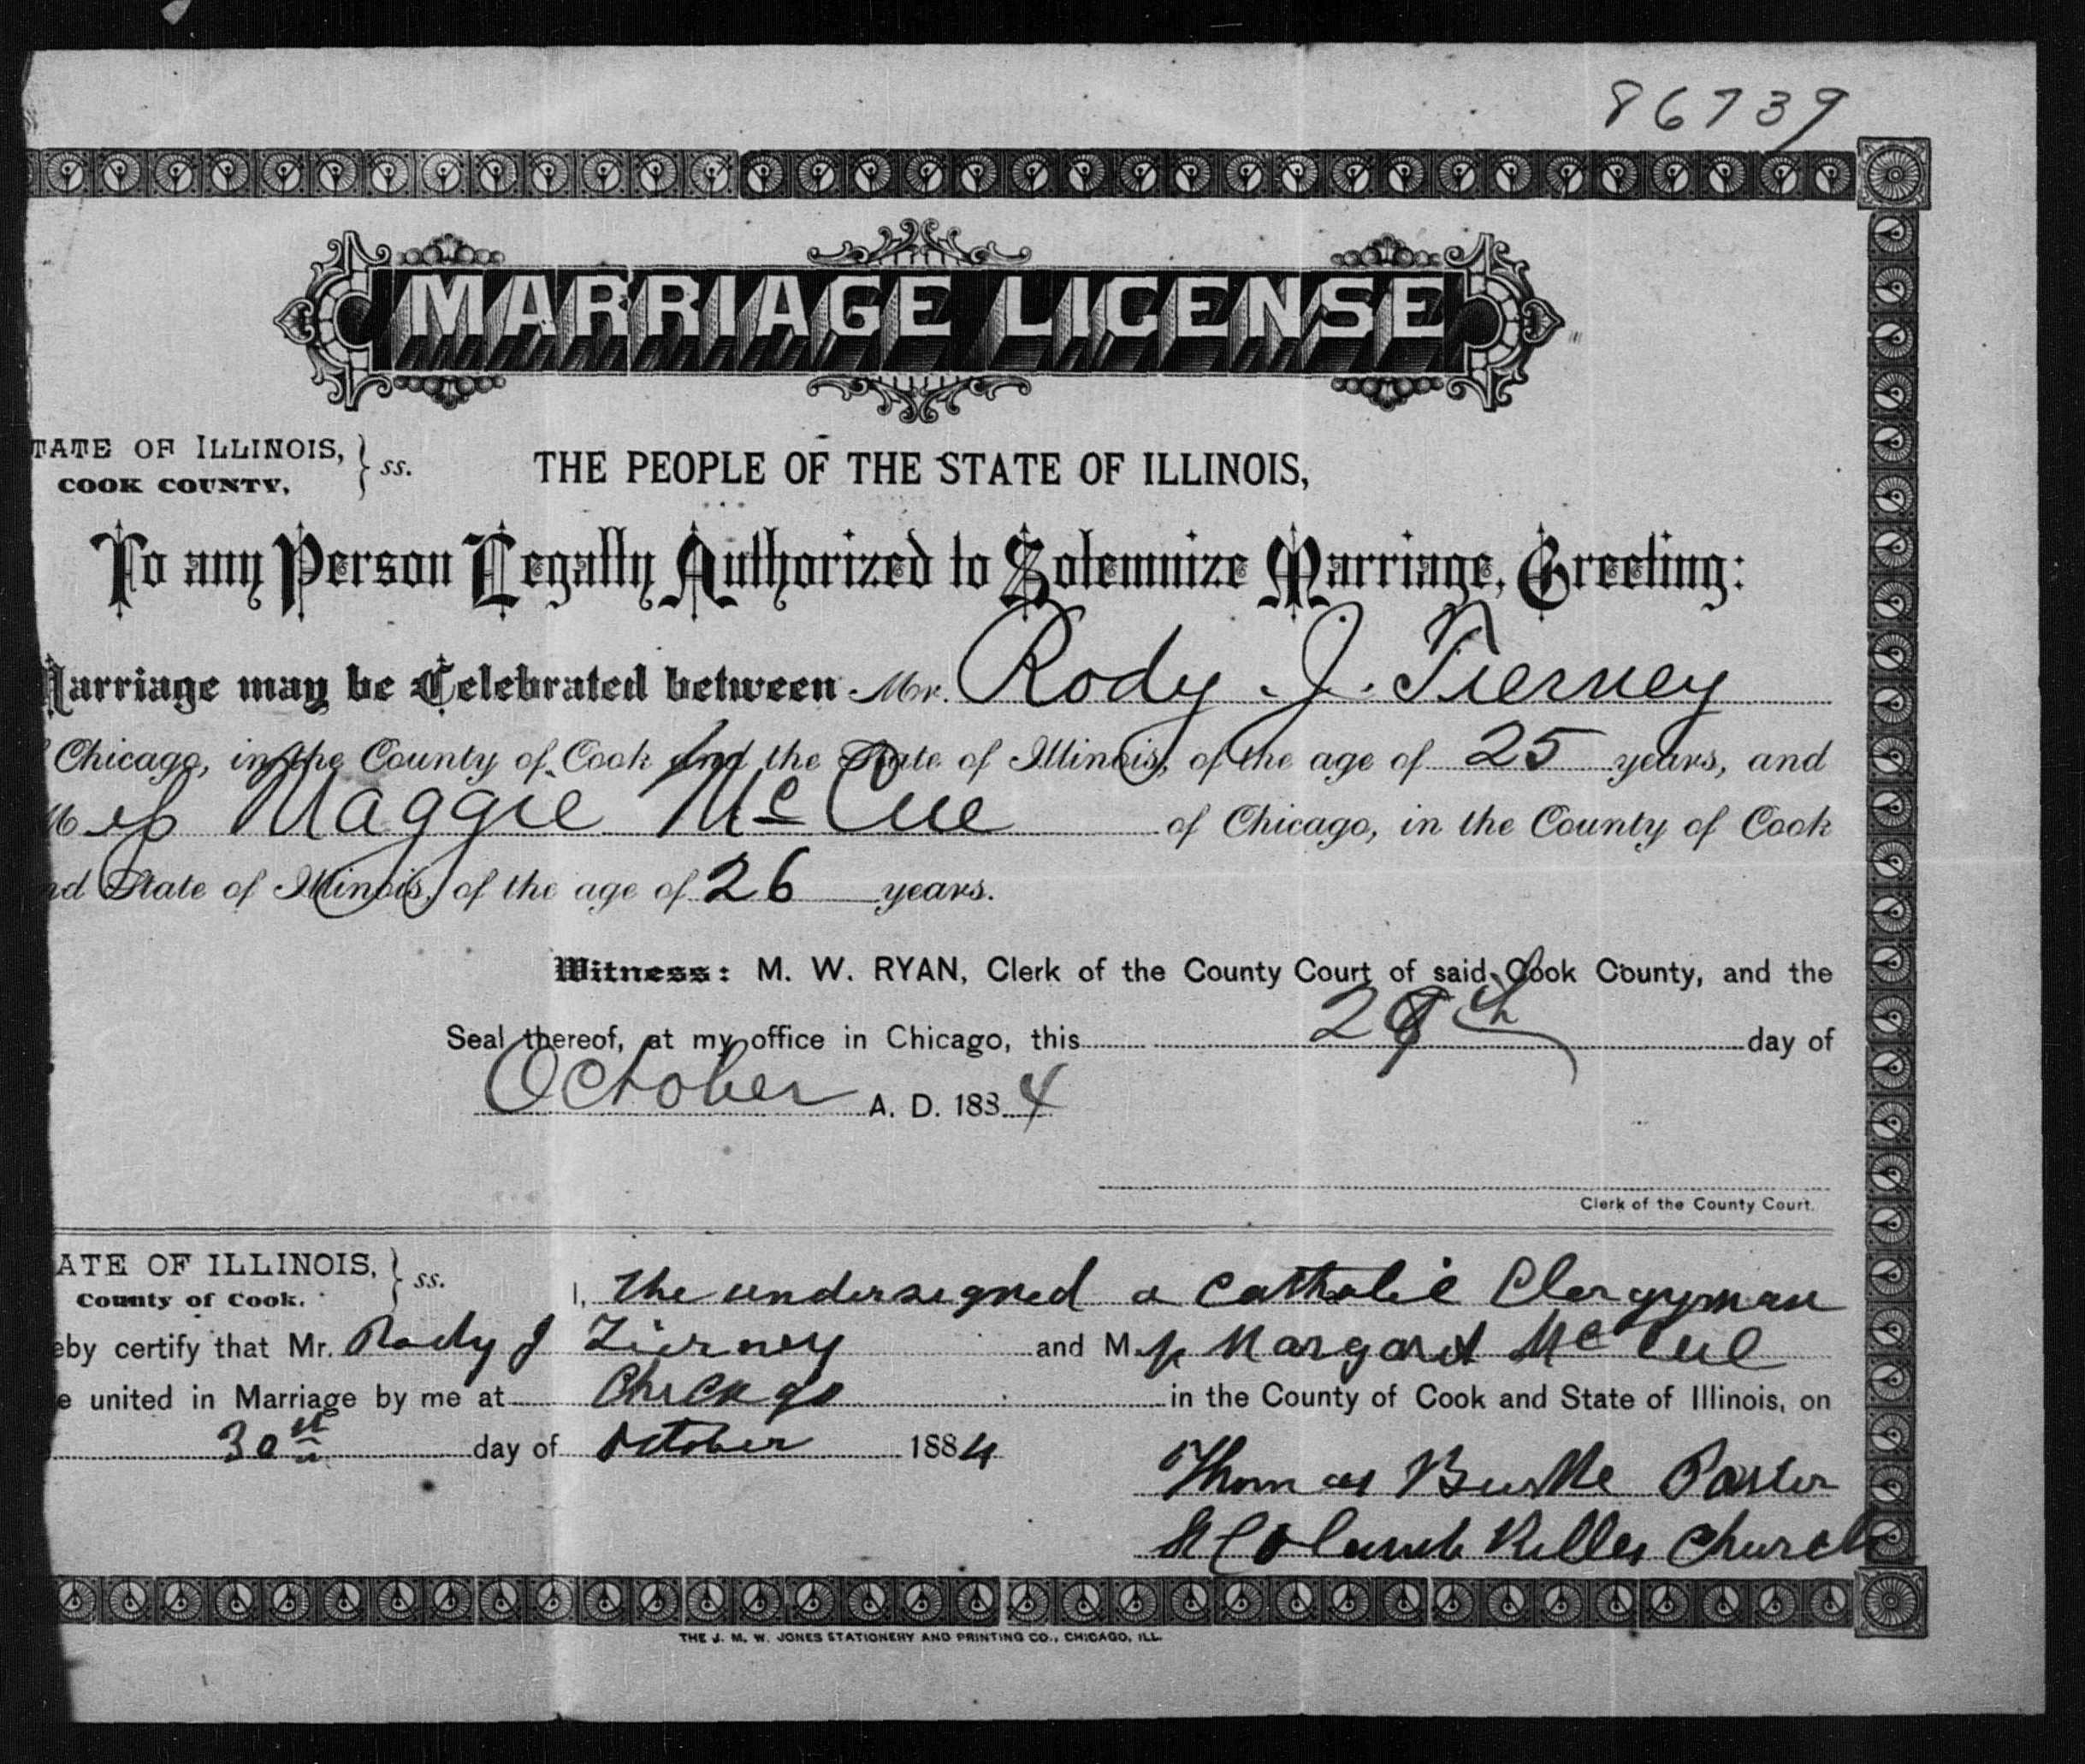 86739
MARRIAGE LICENSE
TATE OF ILLINOIS, } ss.
COOK COUNTY,
THE PEOPLE OF THE STATE OF ILLINOIS,
To any Person Legally Authorized to Solemnize Marriage, Greeting:
Marriage may be Celebrated between Mr. Rody J. Tierney
Chicago, in the County of Cook and the State of Illinois, of the age of 25 years, and
Miss Maggie McCue of Chicago, in the County of Cook
nd State of Illinois, of the age of 26 years.
Witness: M. W. RYAN, Clerk of the County Court of said Cook County, and the
Seal thereof, at my office in Chicago, this th day of
October A. D. 1884
Clerk of the County Court.
ATE OF ILLINOIS, } ss.
County of Cook.
I, the undersigned a Catholic Clergyman
eby certify that Mr. Rody J Tierney and Miss Margaret McCue
e united in Marriage by me at Chicago in the County of Cook and State of Illinois, on
30 day of October 1884
Thomas Burke Pastor
St Columb Killes Church
THE J. M. W. JONES STATIONERY AND PRINTING CO., CHICAGO, ILL.